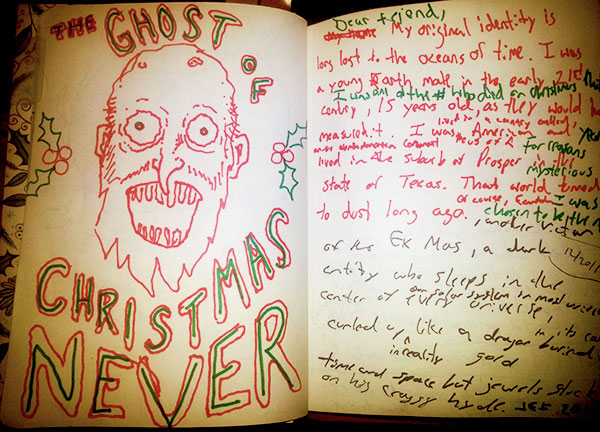 THE GHOST
OF
CHRISTMAS
NEVER
Dear friend,
My original identity is
long lost to the oceans of time. I was
a young Earth male in the early 21st
I was one of the # who died on Christmas that
century, 15 years old, as they would have
lived in a country called
measured it. I was American and year
North American Continent
for reasons
lived in the suburb of Prosper in the
mysterious
state of Texas. That world turned
of course,
I was
to dust long ago. chosen to be the n
, another victim
of the Ex Mas, a dark
12/2011
entity who sleeps in the
our solar system in most universes
center of every universe,
in its
curled up, like a dragon buried in
in reality gold
time and space but jewels
on his craggy hyde. SEE